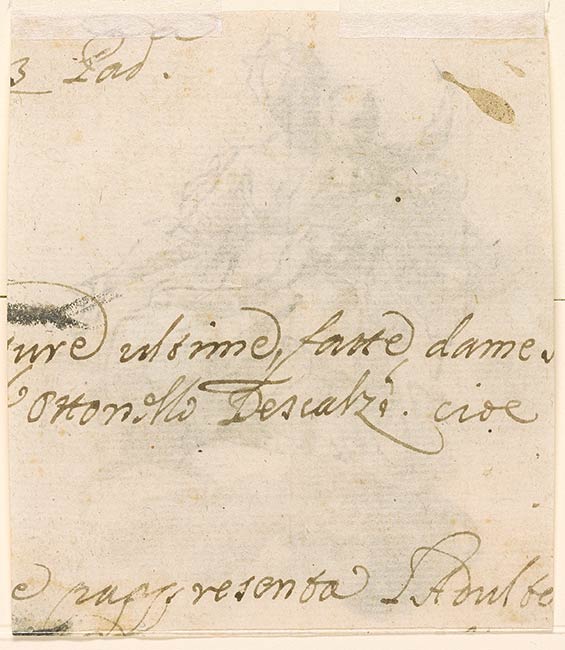 3 Pad.
ture ultime, fatte dame
Ottonello Descalzi. cioe
e rappresenta L'Adulte